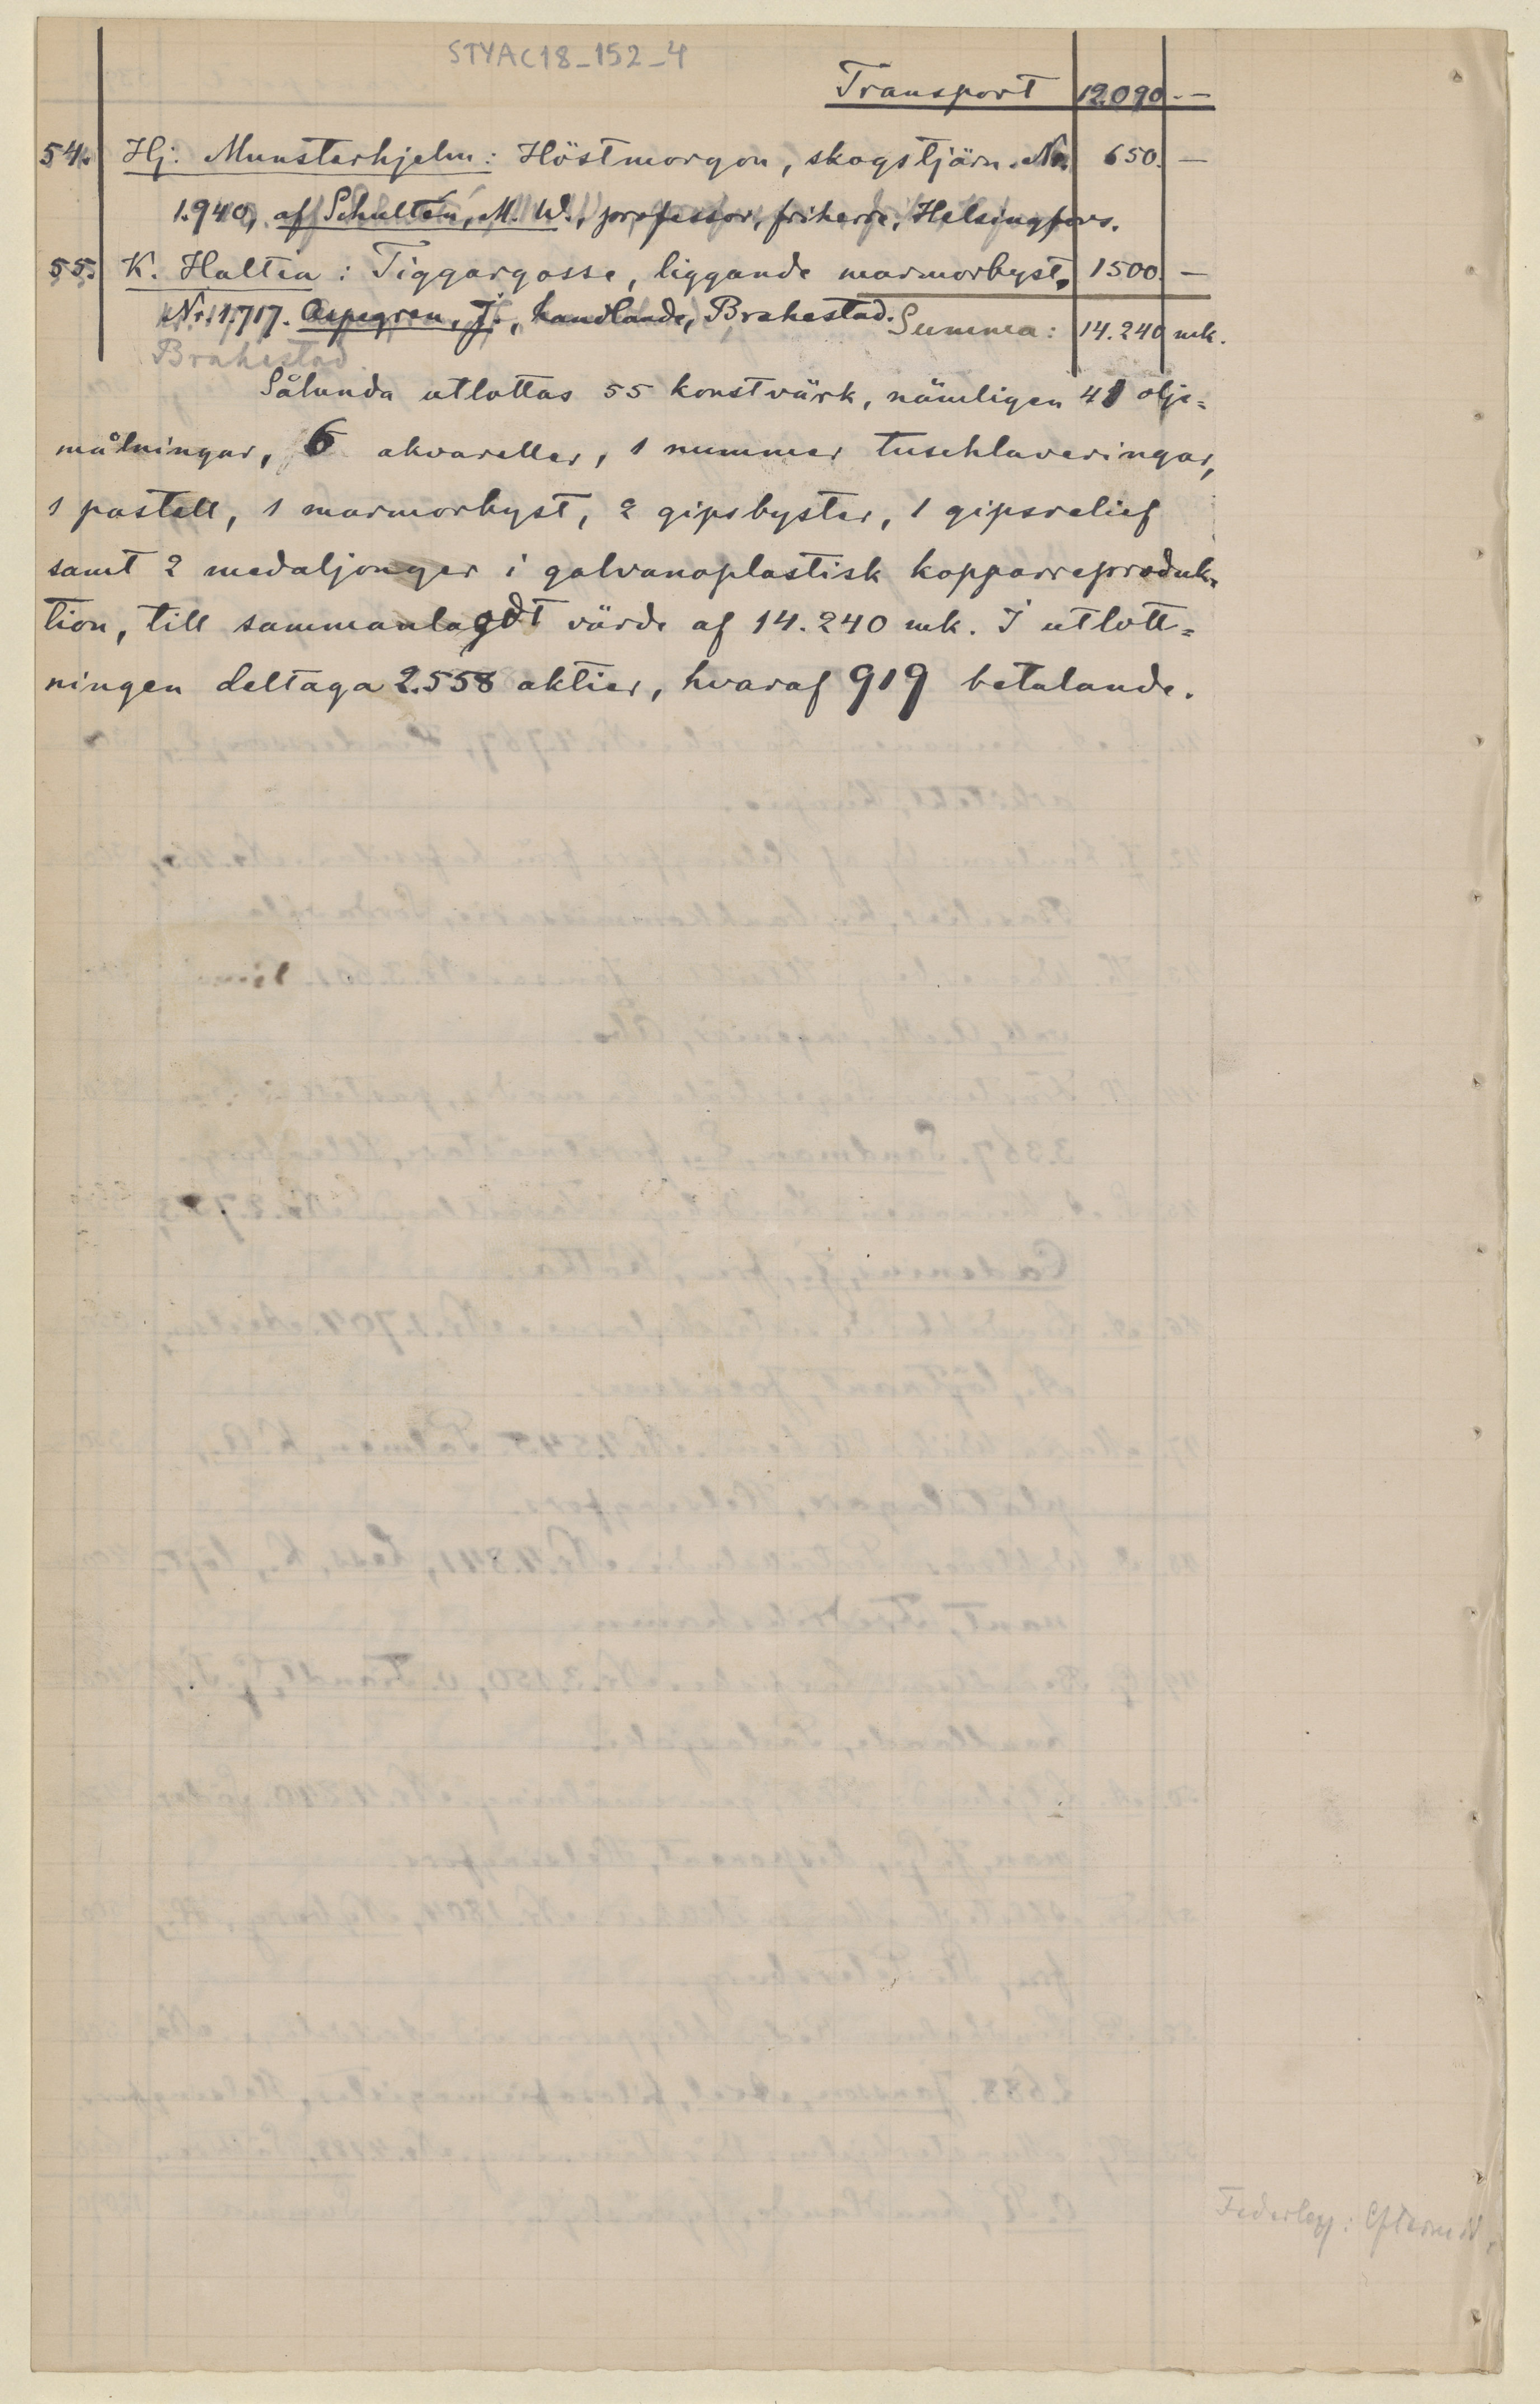 STYAC18_152_4
Transport 12090 . —
54. Hj. Munsterhjelm: Höstmorgon, skogstjärn. No. 650. —
1.940, af Schultén, M. W., professor, friherre, Helsingfors.
55. K. Haltia: Tiggargosse, liggande marmorbyst. 1500. —
Nr. 1.717. Aspegren, J., handlande, Brahestad. Summa: 14.240 mk.
Brahestad
Sålunda utlottas 55 konstvärk, nämligen 41 olje=
målningar, 6 akvareller, 1 nummer tuschlaveringar,
1 pastell, 1 marmorbyst, 2 gipsbyster, 1 gipsrelief
samt 2 medaljonger i galvanoplastisk kopparreproduk=
tion, till sammanlagdt värde af 14.240 mk. I utlott=
ningen deltaga 2.558 aktier, hvaraf 919 betalande.